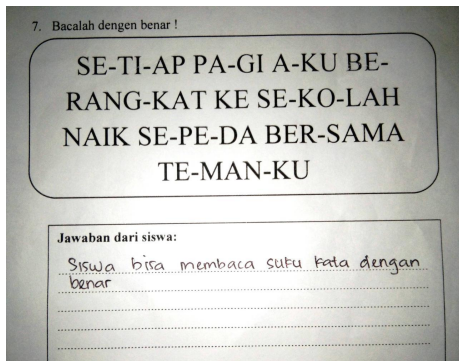 7. Bacalah dengen benar !
SE-TI-AP PA-GI A-KU BE-
RANG-KAT KE SE-KO-LAH
NAIK SE-PE-DA BER-SAMA
TE-MAN-KU
Jawaban dari siswa:
Siswa bisa membaca suku kata dengan
benar